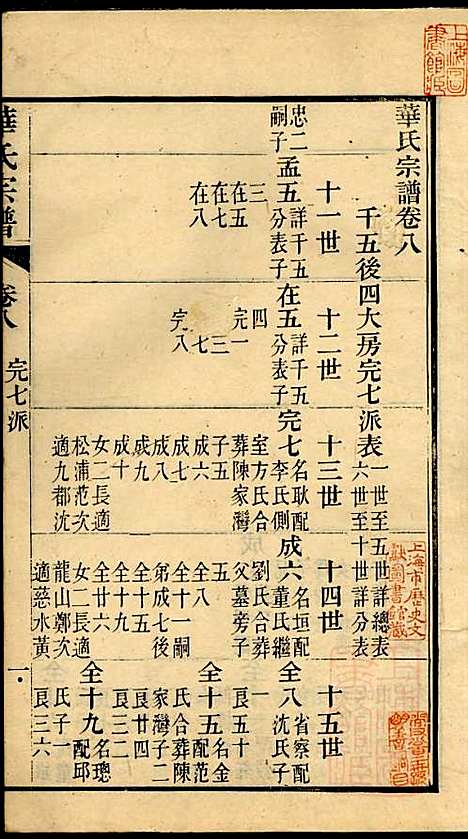 華氏宗譜卷八
千五後四大房完七派表
一世至五世詳總表
六世至十世詳表
十一世
十二世
十三世
十四世
十五世
忠二
嗣子
孟五
詳千五
分表子
三
在五
在七
在八
在五
詳千五
分表子
四
完一
三
七
完八
完七
名耿配
李氏側
室方氏合
葬陳家灣
子五
成六
成七
成九
成十
女二長適
松浦范次
適九都沈
成六
名垣配
董氏繼
劉氏合葬
父墓旁子
五
全八
全十一嗣
弟成七後
全十五
全廿六
女二長適
龍山鄭次
適慈水黃
全八
省察配
沈氏子
一
艮五十
全十五
名金
配范
氏合葬陳
家灣子二
艮廿四
艮三二
全十九
名璁
配邱
氏子一
艮三六
華氏宗譜
卷八
完七派
一
上海圖書館藏
上海市歷史文獻圖書館藏